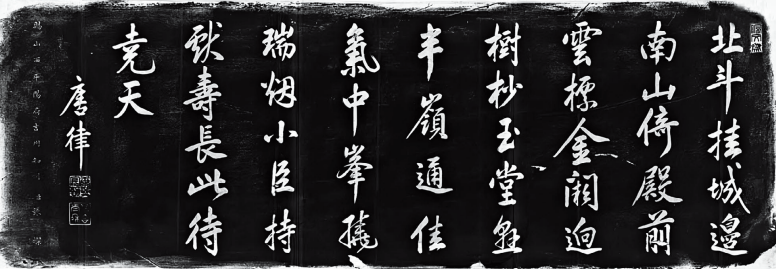 北斗挂城邊
南山倚殿前
雲標金闕迥
樹杪玉堂懸
半嶺通佳
氣中峯繞
瑞烟小臣持
献壽長此待
堯天
唐律